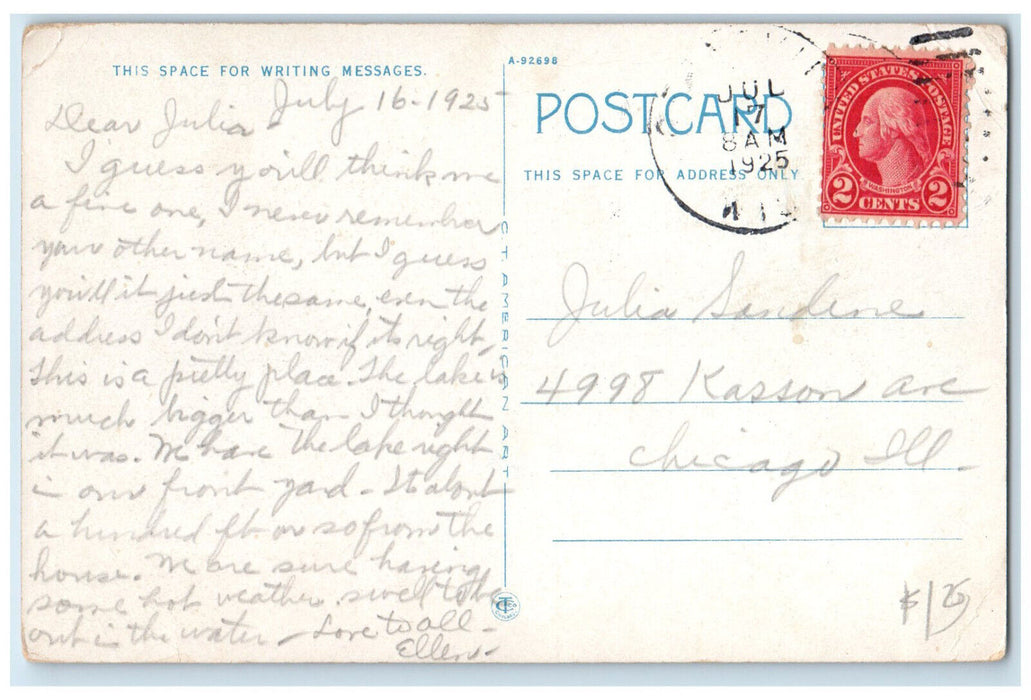 THIS SPACE FOR WRITING MESSAGES.
July 16-1925
Dear Julia -
I guess you'll think me
a fine one, I never remember
your other name, but I guess
you'll it just the same, even the
address I don't know if its right,
This is a pretty place. The lake is
much bigger than I thought
it was. We have the lake right
in our front yard - Its about
a hundred ft. or so from the
house. We are sure having
some hot weather. swell to be
out in the water - Love to all -
Ellen -
A-92698
POSTCARD
THIS SPACE FOR ADDRESS ONLY
JUL
17
8 AM
1925
UNITED STATES POSTAGE
WASHINGTON
2 CENTS 2
C. T. AMERICAN ART
Julia
4998 Kasson ave
Chicago Ill.